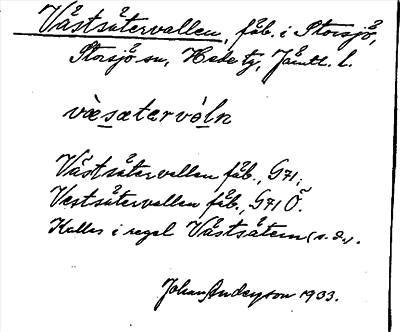 Västsätervallen, fäb. i Storsjö,
Storsjö sn, Hede tg, Jämtl. l.
væsætervóln
Västsätervallen fäb., G71,
Vestsätervallen fäb., G71 Ö.
Kallas i regel Västsätern (s. d.).
Johan Anderson 1933.